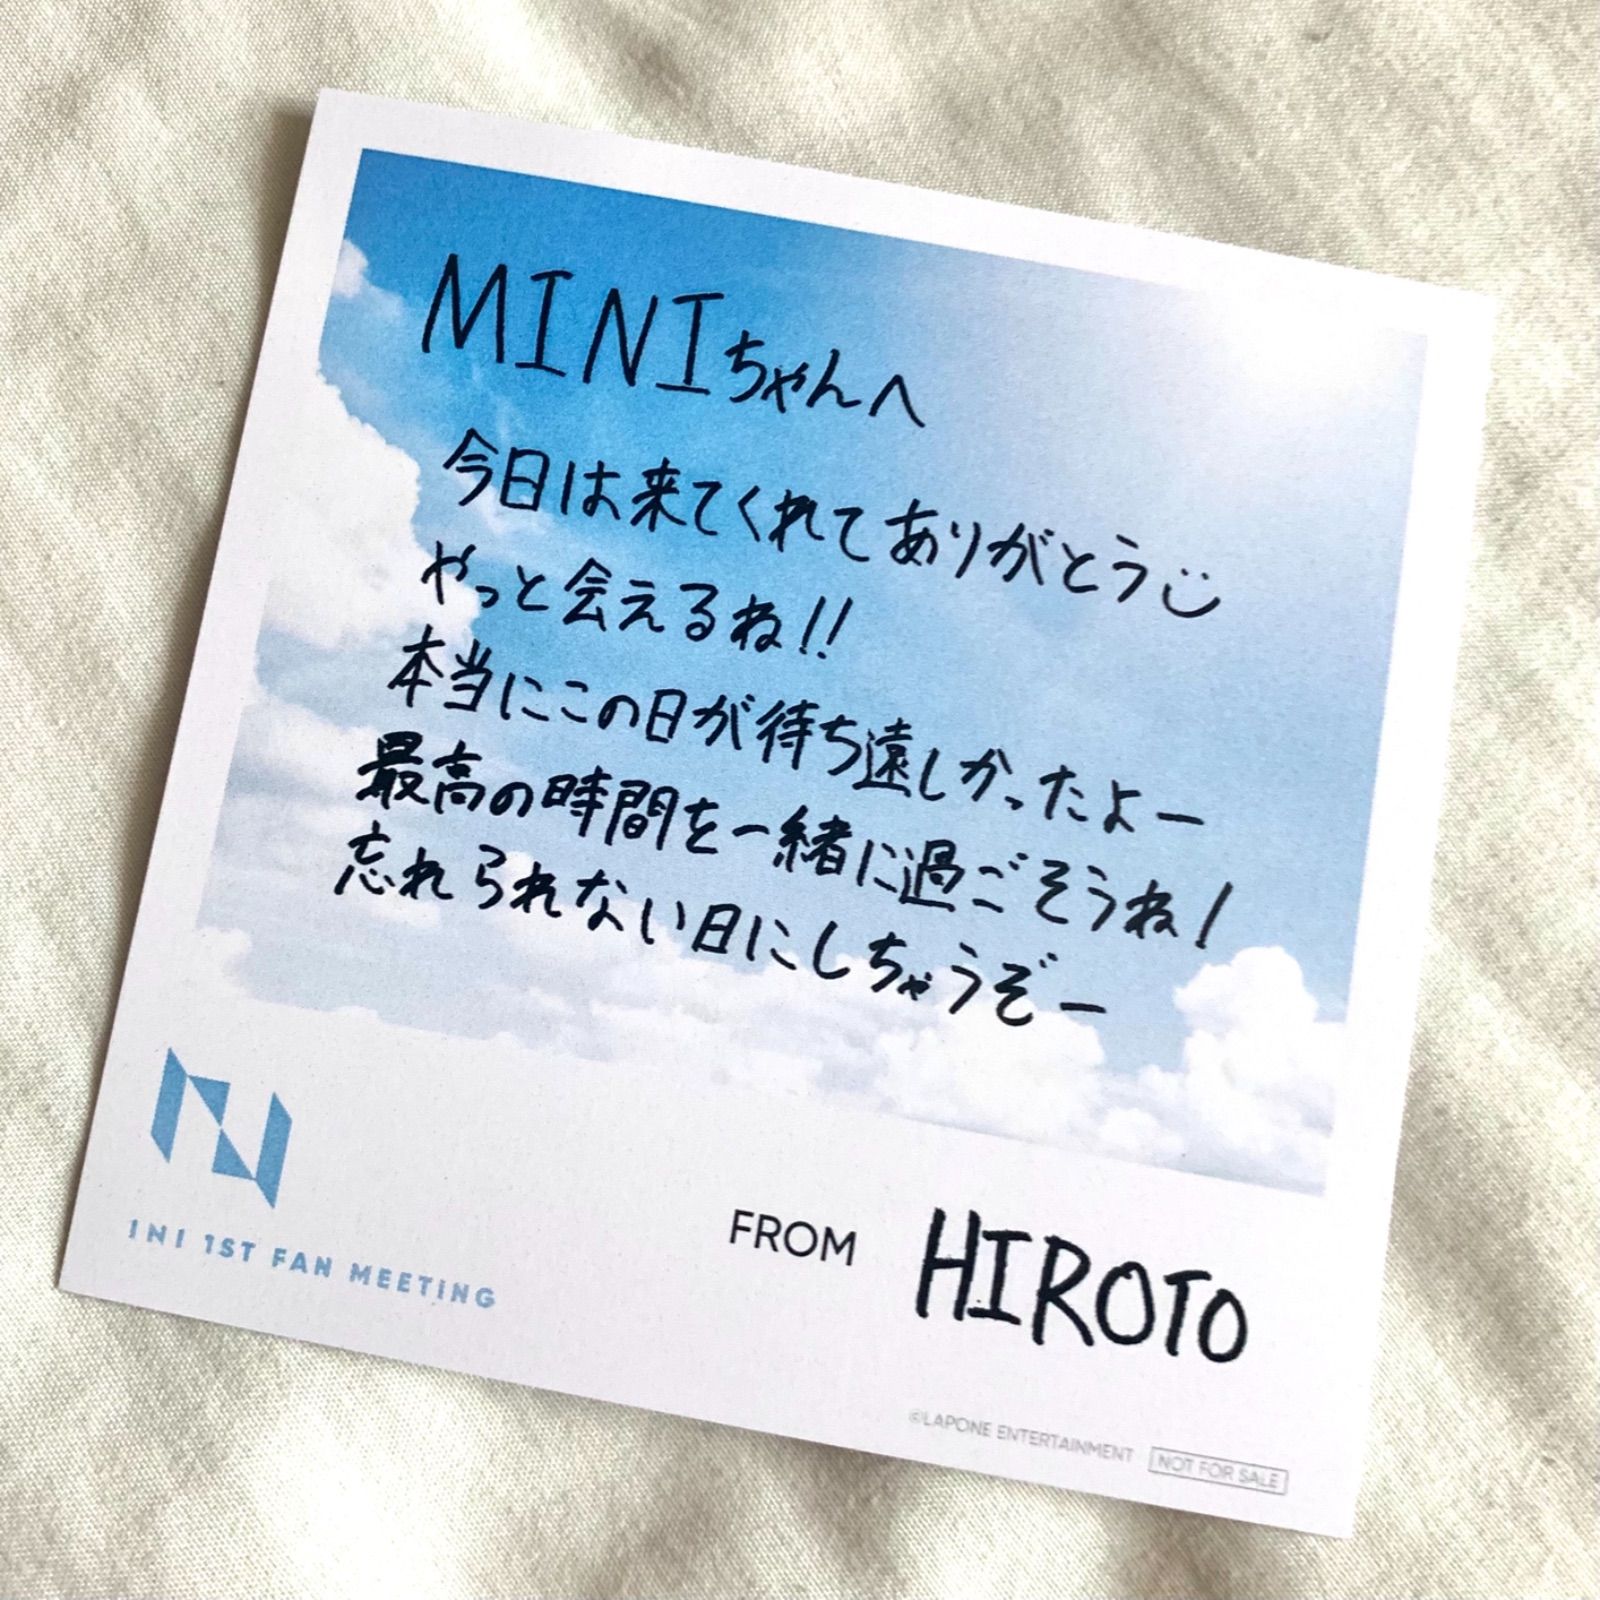 MINIちゃんへ
今日は来てくれてありがとう
やっと会えるね!!
本当にこの日が待ち遠しかったよー
最高の時間を一緒に過ごそうね!
忘れられない日にしちゃうぞー
INI 1ST FAN MEETING
FROM HIROTO
©LAPONE ENTERTAINMENT NOT FOR SALE